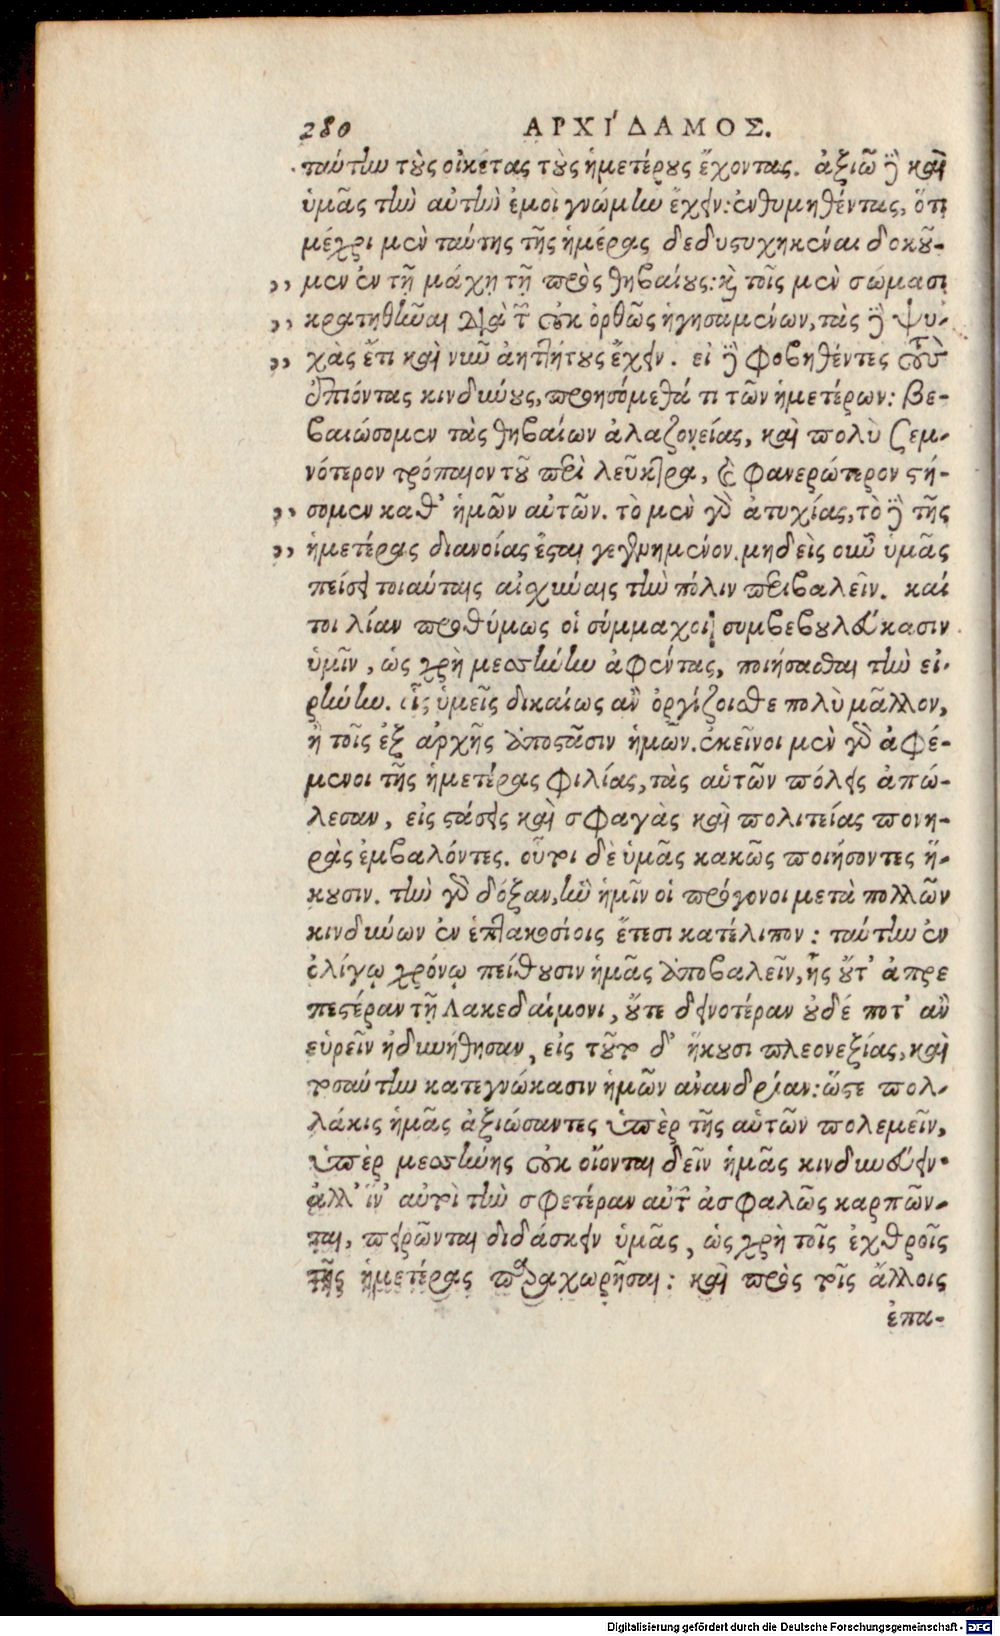 280 ΑΡΧΙ´ΔΑΜΟΣ.
ταύτην τοὺς οἰκέτας τοὺς ἡμετέρους ἔχοντας. ἀξιῶ δὲ καὶ
ὑμᾶς τὴν αὐτὴν ἐμοὶ γνώμην ἔχειν: ἐνθυμηθέντας, ὅτι
μέχρι μὲν ταύτης τῆς ἡμέρας δεδυστυχηκέναι δοκοῦ-
,, μεν ἐν τῇ μάχῃ τῇ πρὸς θηβαίους: καὶ τοῖς μὲν σώμασι
,, κρατηθῆναι διὰ τὸν οὐκ ὀρθῶς ἡγησάμενον, τὰς δὲ ψυ-
,, χὰς ἔτι καὶ νῦν ἀηττήτους ἔχειν. εἰ δὲ φοβηθέντες τοὺς
ἐπιόντας κινδύνους, προησόμεθά τι τῶν ἡμετέρων: βε-
βαιώσομεν τὰς θηβαίων ἀλαζονείας, καὶ πολὺ σεμ-
νότερον τρόπαιον τοῦ περὶ λεῦκτρα, καὶ φανερώτερον στή-
,, σομεν καθ' ἡμῶν αὐτῶν. τὸ μὲν γὰρ ἀτυχίας, τὸ δὲ τῆς
,, ἡμετέρας διανοίας ἔσται γεγενημένον. μηδεὶς οὖν ὑμᾶς
πείσῃ τοιαύταις αἰσχύναις τὴν πόλιν περιβαλεῖν. καί
τοι λίαν προθύμως οἱ σύμμαχοι συμβεβουλεύκασιν
ὑμῖν, ὡς χρὴ μεσσήνην ἀφέντας, ποιήσασθαι τὴν εἰ-
ρήνην. οἷς ὑμεῖς δικαίως ἂν ὀργίζοισθε πολὺ μᾶλλον,
ἢ τοῖς ἐξ ἀρχῆς ἀποστᾶσιν ἡμῶν. ἐκεῖνοι μὲν γὰρ ἀφέ-
μενοι τῆς ἡμετέρας φιλίας, τὰς αὑτῶν πόλεις ἀπώ-
λεσαν, εἰς στάσεις καὶ σφαγὰς καὶ πολιτείας πονη-
ρὰς ἐμβαλόντες. οὗτοι δὲ ὑμᾶς κακῶς ποιήσοντες ἥ-
κουσιν. τὴν γὰρ δόξαν, ἣν ἡμῖν οἱ πρόγονοι μετὰ πολλῶν
κινδύνων ἐν ἑπτακοσίοις ἔτεσι κατέλιπον: ταύτην ἐν
ὀλίγῳ χρόνῳ πείθουσιν ἡμᾶς ἀποβαλεῖν, ἧς οὔτ' ἀπρε
πεστέραν τῇ Λακεδαίμονι, οὔτε δεινοτέραν οὐδέ ποτ' ἂν
εὑρεῖν ἠδυνήθησαν, εἰς τοῦτο δ' ἥκουσι πλεονεξίας, καὶ
τοσαύτην κατεγνώκασιν ἡμῶν ἀνανδρίαν: ὥστε πολ-
λάκις ἡμᾶς ἀξιώσαντες ὑπὲρ τῆς αὑτῶν πολεμεῖν,
ὑπὲρ μεσσήνης οὐκ οἴονται δεῖν ἡμᾶς κινδυνεύειν.
ἀλλ' ἵν' αὐτοὶ τὴν σφετέραν αὐτῶν ἀσφαλῶς καρπῶν-
ται, πειρῶνται διδάσκειν ὑμᾶς, ὡς χρὴ τοῖς ἐχθροῖς
τῆς ἡμετέρας παραχωρῆσαι: καὶ πρὸς τοῖς ἄλλοις
ἐπα-
Digitalisierung gefördert durch die Deutsche Forschungsgemeinschaft - DFG